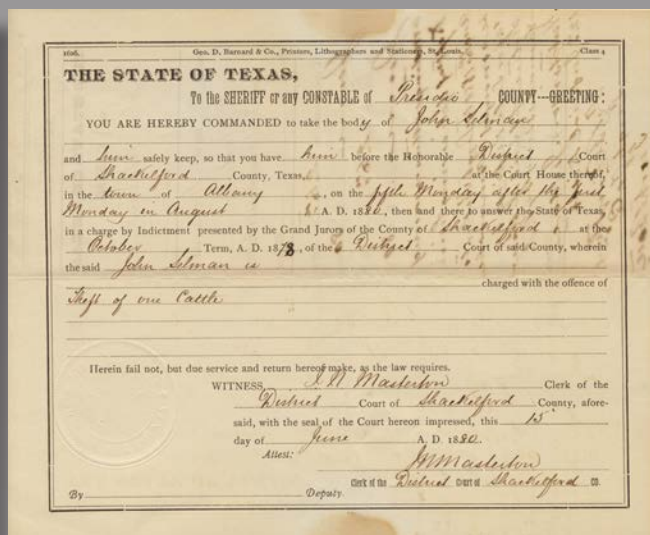 1626. Geo. D. Barnard & Co., Printers, Lithographers and Stationers, St. Louis. Class 4
THE STATE OF TEXAS,
To the SHERIFF or any CONSTABLE of Presidio COUNTY---GREETING:
YOU ARE HEREBY COMMANDED to take the body of John Selman
and him safely keep, so that you have him before the Honorable District Court
of Shackelford County, Texas, at the Court House thereof,
in the town of Albany, on the fifth Monday after the first
Monday in August A. D. 1880, then and there to answer the State of Texas,
in a charge by Indictment presented by the Grand Jurors of the County of Shackelford at the
October Term, A. D. 1878, of the District Court of said County, wherein
the said John Selman is
charged with the offence of
Theft of one Cattle
Herein fail not, but due service and return hereof make, as the law requires.
WITNESS, J N Masterton Clerk of the
District Court of Shackelford County, afore-
said, with the seal of the Court hereon impressed, this 15
day of June A. D. 1880.
Attest:
J N Masterton
Clerk of the District Court of Shackelford co.
By Deputy.